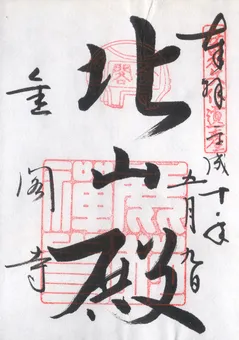 奉拝
平成十年五月九日
北山殿
金閣寺